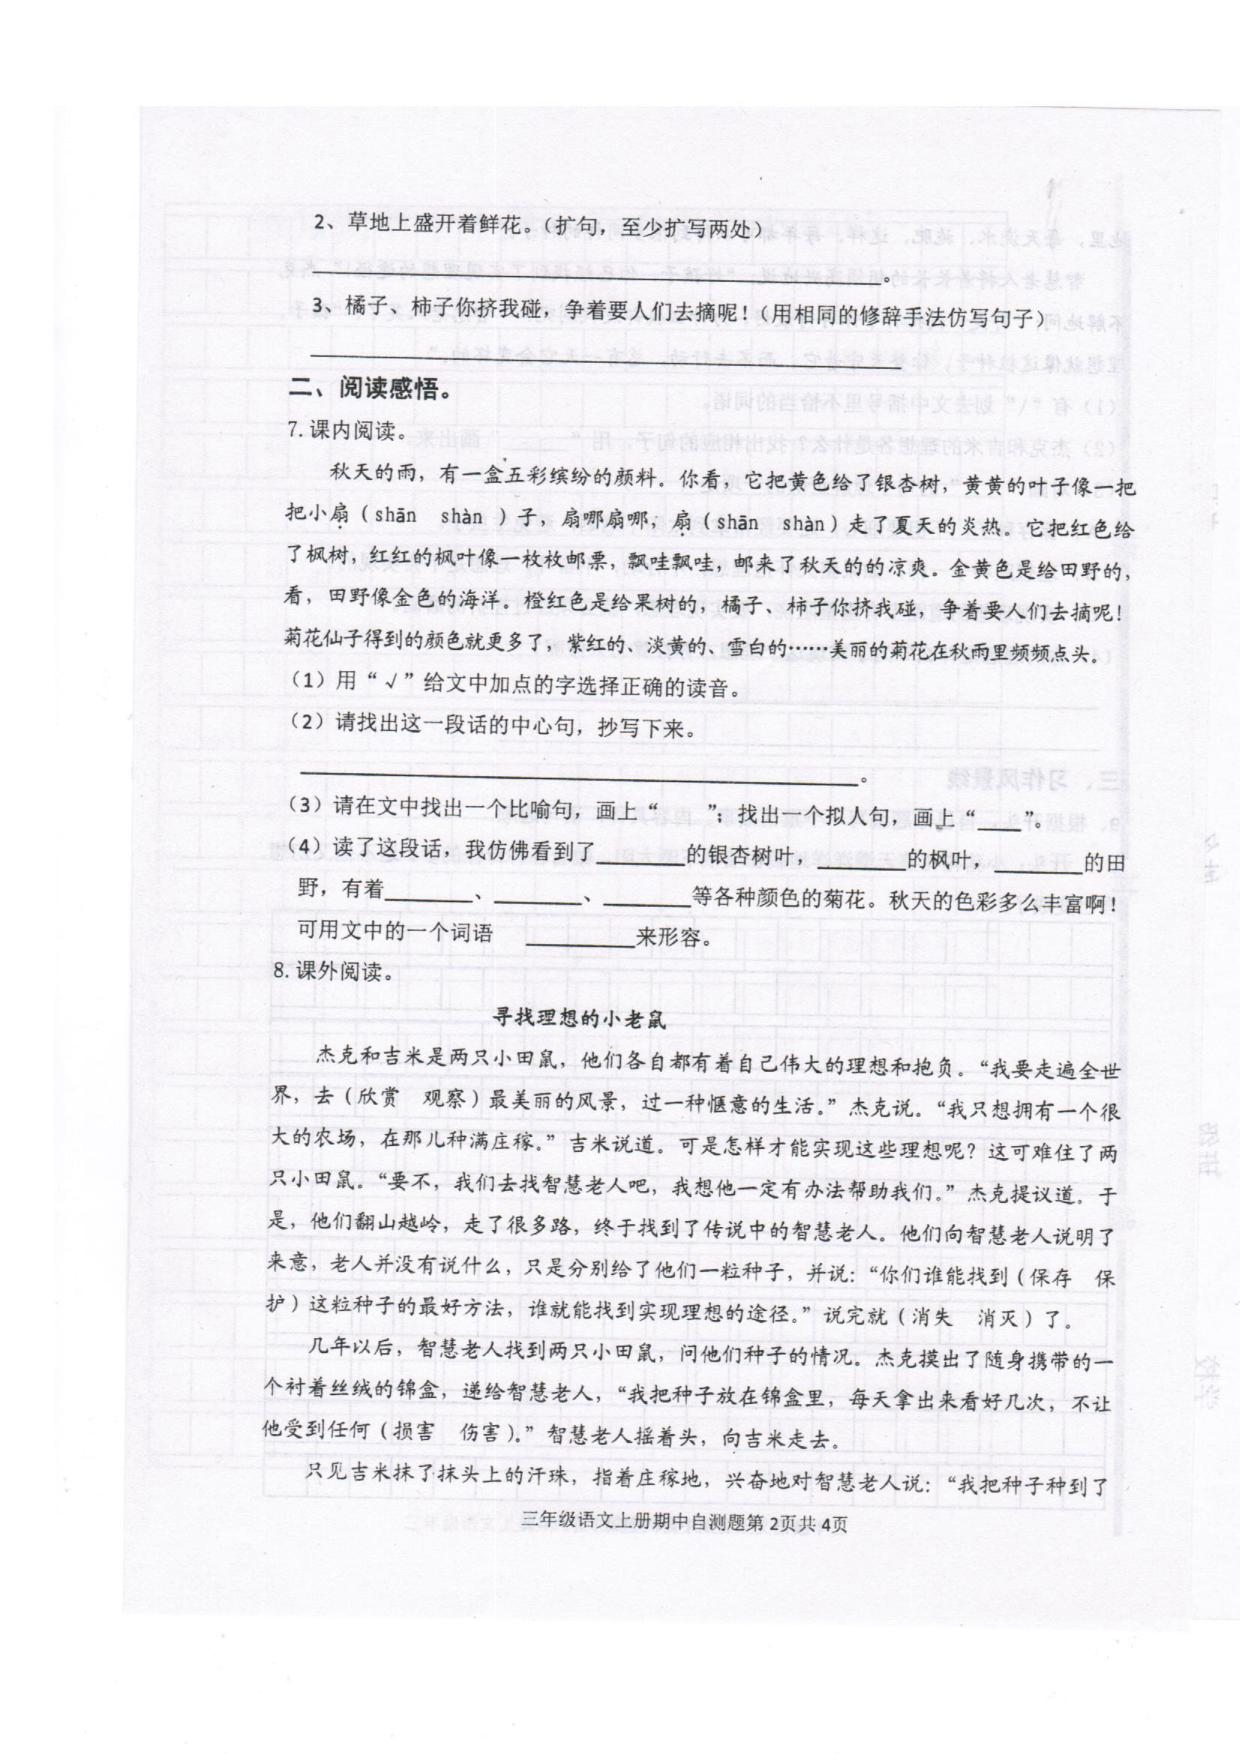 2、草地上盛开着鲜花。（扩句，至少扩写两处）
____________________。
3、橘子、柿子你挤我碰，争着要人们去摘呢！（用相同的修辞手法仿写句子）
____________________
二、阅读感悟。
7.课内阅读。
秋天的雨，有一盒五彩缤纷的颜料。你看，它把黄色给了银杏树，黄黄的叶子像一把
把小扇（shān shàn ）子，扇哪扇哪，扇（shān shàn）走了夏天的炎热。它把红色给
了枫树，红红的枫叶像一枚枚邮票，飘哇飘哇，邮来了秋天的的凉爽。金黄色是给田野的，
看，田野像金色的海洋。橙红色是给果树的，橘子、柿子你挤我碰，争着要人们去摘呢！
菊花仙子得到的颜色就更多了，紫红的、淡黄的、雪白的……美丽的菊花在秋雨里频频点头。
（1）用“√”给文中加点的字选择正确的读音。
（2）请找出这一段话的中心句，抄写下来。
____________________。
（3）请在文中找出一个比喻句，画上“　　”；找出一个拟人句，画上“____”。
（4）读了这段话，我仿佛看到了________的银杏树叶，________的枫叶，________的田
野，有着________、________、________等各种颜色的菊花。秋天的色彩多么丰富啊！
可用文中的一个词语 __________来形容。
8.课外阅读。
寻找理想的小老鼠
杰克和吉米是两只小田鼠，他们各自都有着自己伟大的理想和抱负。“我要走遍全世
界，去（欣赏 观察）最美丽的风景，过一种惬意的生活。”杰克说。“我只想拥有一个很
大的农场，在那儿种满庄稼。”吉米说道。可是怎样才能实现这些理想呢？这可难住了两
只小田鼠。“要不，我们去找智慧老人吧，我想他一定有办法帮助我们。”杰克提议道。于
是，他们翻山越岭，走了很多路，终于找到了传说中的智慧老人。他们向智慧老人说明了
来意，老人并没有说什么，只是分别给了他们一粒种子，并说：“你们谁能找到（保存 保
护）这粒种子的最好方法，谁就能找到实现理想的途径。”说完就（消失 消灭）了。
几年以后，智慧老人找到两只小田鼠，问他们种子的情况。杰克摸出了随身携带的一
个衬着丝绒的锦盒，递给智慧老人，“我把种子放在锦盒里，每天拿出来看好几次，不让
他受到任何（损害 伤害）。”智慧老人摇着头，向吉米走去。
只见吉米抹了抹头上的汗珠，指着庄稼地，兴奋地对智慧老人说：“我把种子种到了
三年级语文上册期中自测题第 2页共 4页